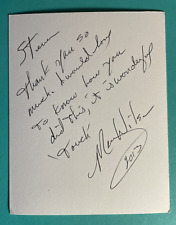 Steven
Thank You so
much. I would love
To know how you
did this, it is wonderful
Touch
2013